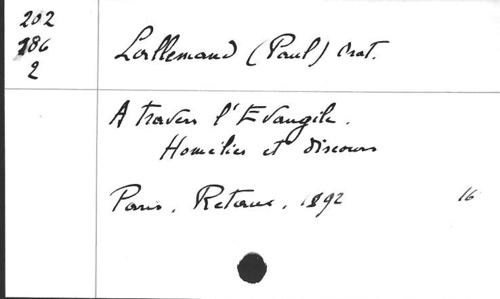 202
186
2
Lallemand (Paul) Orat.
A travers l'Evangile.
Homélies et discours
Paris, Retaux, 1892 16